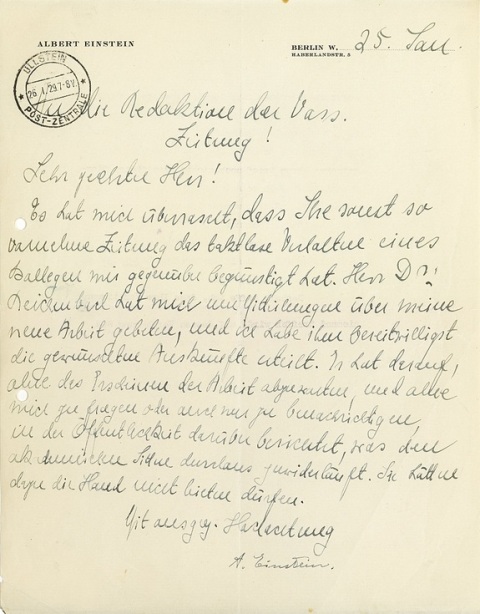 ALBERT EINSTEIN
BERLIN W. 25. Jan.
HABERLANDSTR. 5
ULLSTEIN
26.1.29.7-8V.
POST-ZENTRALE
An die Redaktion der Voss.
Zeitung!
Sehr geehrter Herr!
Es hat mich überrascht, dass Ihre sonst so
vornehme Zeitung das taktlose Verhalten eines
Kollegen mir gegenüber begünstigt hat. Herr Dr.
Reichenbach hat mich um Mitteilungen über meine
neue Arbeit gebeten, und ich habe ihm Bereitwilligst
die gewünschten Auskünfte erteilt. Er hat darauf,
ohne das Erscheinen der Arbeit abzuwarten, und ohne
mich zu fragen oder auch nur zu benachrichtigen,
in der Öffentlichkeit darüber berichtet, was den
akademischen Sitten durchaus zuwiderläuft. Sie hätten
die Hand nicht bieten dürfen.
Mit ausgez. Hochachtung
A. Einstein.